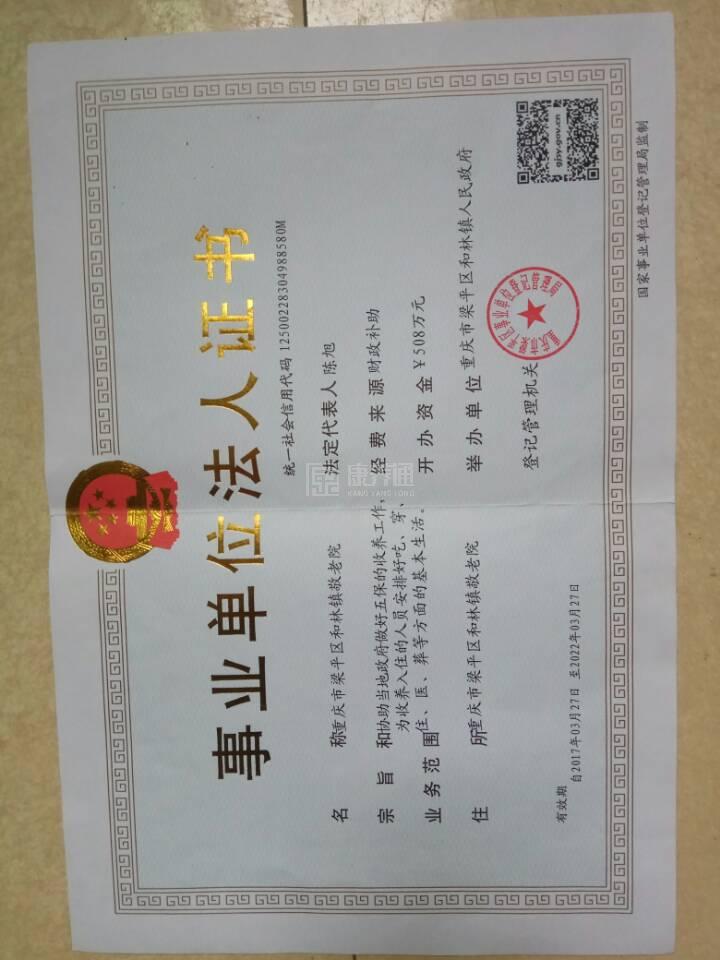 事业单位法人证书
统一社会信用代码 12500228304988580M
名称 重庆市梁平区和林镇敬老院
宗旨和业务范围 协助当地政府做好五保的收养工作,
为收养入住的人员安排好吃、穿、
住、医、葬等方面的基本生活。
住所 重庆市梁平区和林镇敬老院
法定代表人 陈旭
经费来源 财政补助
开办资金 ￥508万元
举办单位 重庆市梁平区和林镇人民政府
登记管理机关
有效期
自2017年03月27日 至2022年03月27日
gjsy.gov.cn
国家事业单位登记管理局监制
康养通
KANG YANG TONG